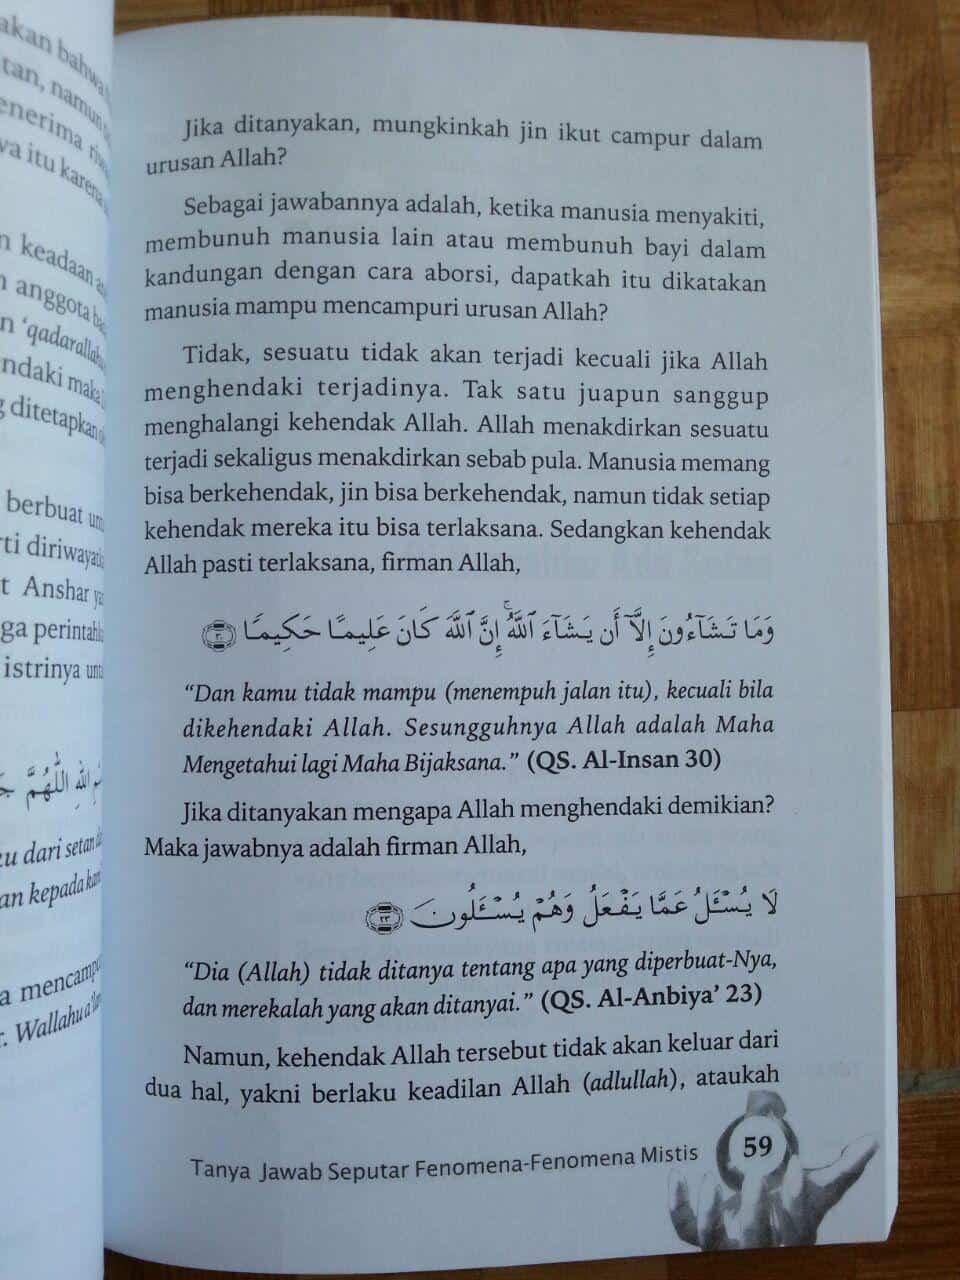 akan bahwa
tan, namun
enerima
ya itu karena
n keadaan
anggota
n 'qadarallahu
ndaki maka
g ditetapkan
berbuat
rti diriwayatk
t Anshar
ga perintahk
istrinya untu
اللهِ اللَّهُمَّ
u dari setan
an kepada
a mencampu
r. Wallahu a'lam
Jika ditanyakan, mungkinkah jin ikut campur dalam
urusan Allah?
Sebagai jawabannya adalah, ketika manusia menyakiti,
membunuh manusia lain atau membunuh bayi dalam
kandungan dengan cara aborsi, dapatkah itu dikatakan
manusia mampu mencampuri urusan Allah?
Tidak, sesuatu tidak akan terjadi kecuali jika Allah
menghendaki terjadinya. Tak satu juapun sanggup
menghalangi kehendak Allah. Allah menakdirkan sesuatu
terjadi sekaligus menakdirkan sebab pula. Manusia memang
bisa berkehendak, jin bisa berkehendak, namun tidak setiap
kehendak mereka itu bisa terlaksana. Sedangkan kehendak
Allah pasti terlaksana, firman Allah,
وَمَا تَشَآءُونَ إِلَّآ أَن يَشَآءَ ٱللَّهُ ۚ إِنَّ ٱللَّهَ كَانَ عَلِيمًا حَكِيمًا ٣٠
“Dan kamu tidak mampu (menempuh jalan itu), kecuali bila
dikehendaki Allah. Sesungguhnya Allah adalah Maha
Mengetahui lagi Maha Bijaksana.” (QS. Al-Insan 30)
Jika ditanyakan mengapa Allah menghendaki demikian?
Maka jawabnya adalah firman Allah,
لَا يُسْـَٔلُ عَمَّا يَفْعَلُ وَهُمْ يُسْـَٔلُونَ ٢٣
“Dia (Allah) tidak ditanya tentang apa yang diperbuat-Nya,
dan merekalah yang akan ditanyai.” (QS. Al-Anbiya’ 23)
Namun, kehendak Allah tersebut tidak akan keluar dari
dua hal, yakni berlaku keadilan Allah (adlullah), ataukah
Tanya Jawab Seputar Fenomena-Fenomena Mistis
59